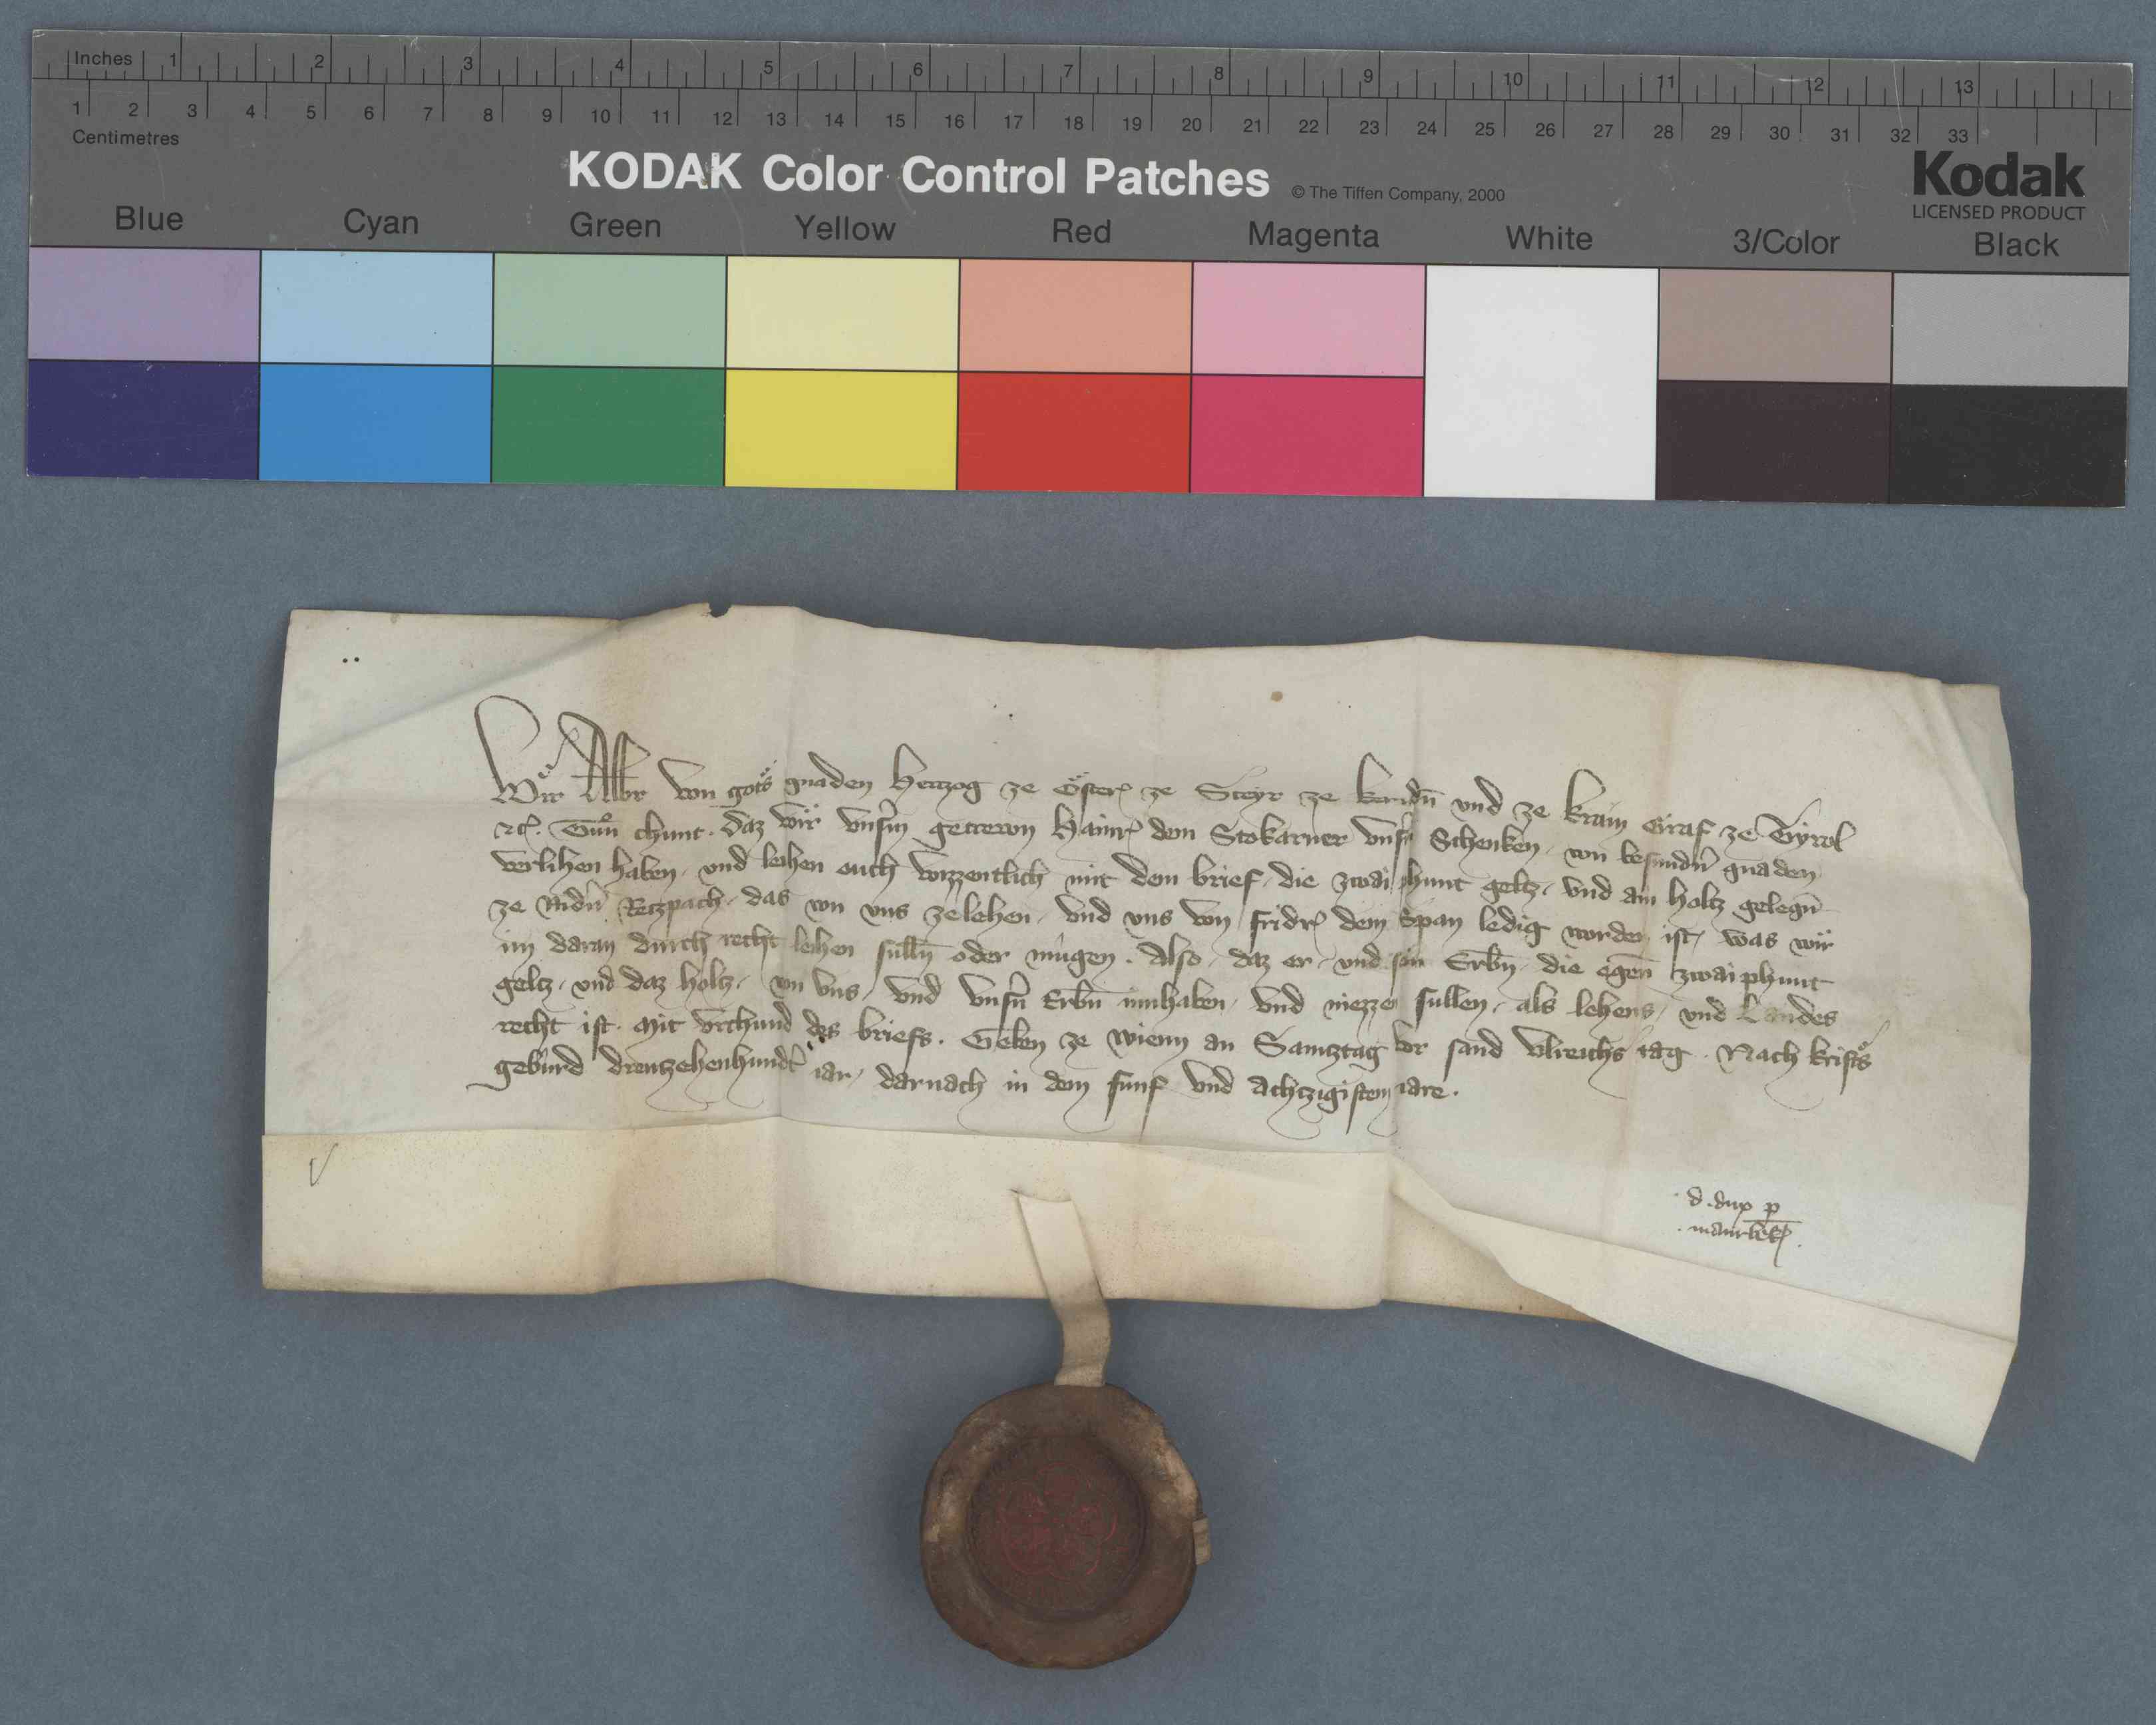 Inches 1 2 3 4 5 6 7 8 9 10 11 12 13
1 2 3 4 5 6 7 8 9 10 11 12 13 14 15 16 17 18 19 20 21 22 23 24 25 26 27 28 29 30 31 32 33
Centimetres
KODAK Color Control Patches © The Tiffen Company, 2000
Kodak
LICENSED PRODUCT
Blue Cyan Green Yellow Red Magenta White 3/Color Black
Wir Albr von gots gnaden Hertzog ze Österr ze Steyr ze kerndn̄ vnd ze krain Graf ze Tyrol
etc. Tůn chunt. Daz wir vnserm getrewn Hainr dem Stokarner vnserm Schenken, von besundern gnaden
verlihen haben, vnd leihen ouch wizzentlich mit dem brief, die zwai phunt geltz, vnd ain holtz gelegn̄
ze Nidern Retzpach, das von vns ze lehen, vnd vns von fridr dem Span ledig worden ist, was wir
im daran durch recht leihen sulln̄ oder mügen. Also, daz er, vnd sin Erbn̄, die egen̄ zwai phunt
geltz, vnd daz holtz, von vns, vnd vnsern Erbn̄ innhaben, vnd niezzen sullen, als lehens, vnd Landes
recht ist. Mit vrchund des briefs. Geben ze wienn an Samztag vor sand vlreichs tag. Nach krists
gebürd dreutzehenhundert iar, darnach in dem fünf vnd achtzigistem iare.
d. dux p